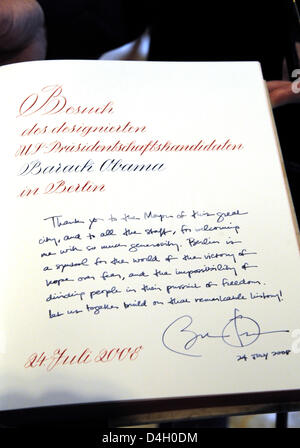 Besuch
des designierten
US-Präsidentschaftskandidaten
Barack Obama
in Berlin
Thank you to the Mayor of this great
city, and to all the staff, for welcoming
me with so much generosity. Berlin is
a symbol for the world of the victory of
hope over fear, and the impossibility of
dividing people in their pursuit of freedom.
Let us together build on that remarkable history!
24 Juli 2008
24 July 2008
alamy
D4H0DM
www.alamy.com